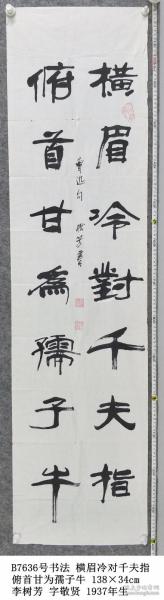 橫眉冷對千夫指
俯首甘為孺子牛
魯迅句 樹芳書
B7636号书法 横眉冷对千夫指
俯首甘为孺子牛 138×34cm
李树芳 字敬贤 1937年生